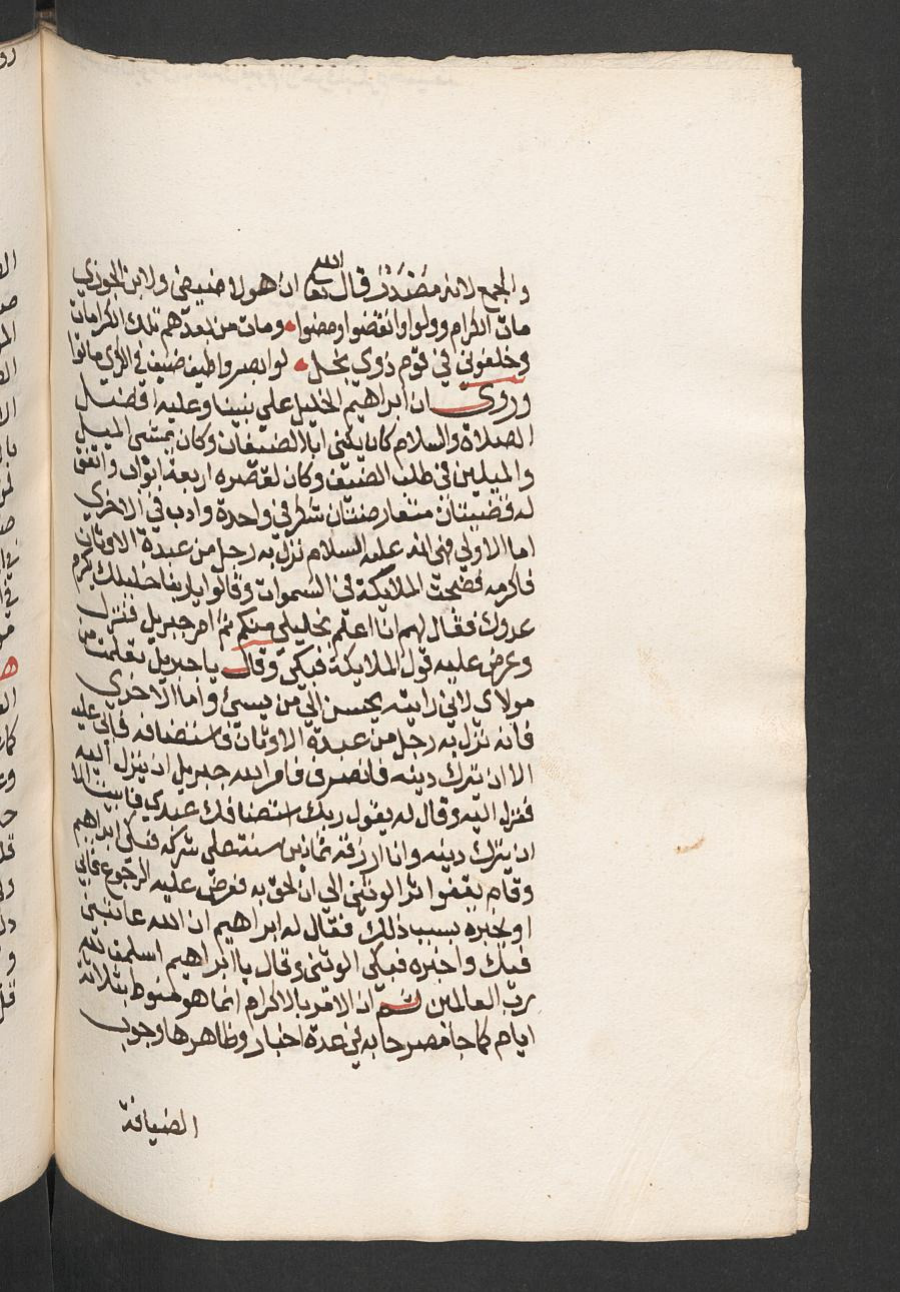 والجمع لانه مصدر قال الله تعا ان هولا ضيفي ولابن الجوزي
مات الكرام وولوا وانقضوا ومضوا ومات من بعدهم تلك الكرامات
وخلفوني في قوم ذوي بخل لو ابصروا طيف ضيف في الكرى ماتوا
وروى ان ابراهيم الخليل على نبينا وعليه افضل
الصلاة والسلام كان يكنى ابا الضيفان وكان يمشي الميل
والميلين في طلب الضيف وكان لقصره اربعة ابواب واتفق
له قضيتان متعارضتان شكر في واحدة وادب في الاخرى
اما الاولى فهي انه عليه السلام نزل به رجل من عبدة الاوثان
فاكرمه فضجت الملايكة في السموات وقالوا يا ربنا خليلك يكرم
عدوك فقال لهم انا اعلم بخليلي منكم ثم امر جبريل فنزل
وعرض عليه قول الملايكة فبكى وقال يا جبريل تعلمت من
مولاي لاني رايته يحسن الى من يسئ واما الاخرى
فانه نزل به رجل من عبدة الاوثان فاستضافه فابى عليه
الا ان يترك دينه فانصرف فامر الله جبريل ان ينزل اليه
فنزل اليه وقال له يقول ربك استضافك عبدي فابيت الا
ان يترك دينه وانا ارزقه ثمانين سنة على شركه فبكى ابراهيم
وقام يقفوا اثر الوثني الى ان لحق به فعرض عليه الرجوع فابى
او يخبره بسبب ذلك فقال له ابراهيم ان الله عاتبني
فيك واخبره فبكى الوثني وقال يا ابراهيم اسلمت لله
رب العالمين ثم ان الامر بالاكرام انما هو منوط بثلاثة
ايام كما جا مصرحا به في عدة اخبار وظاهرها وجوب
الضيافة